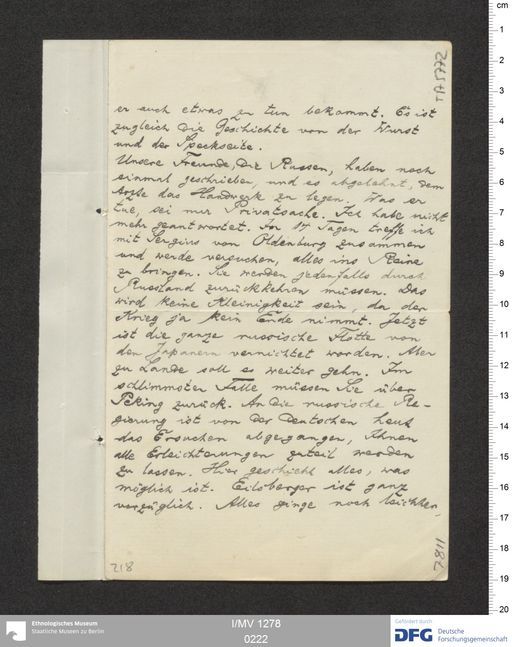 TA 5772
er auch etwas zu tun bekommt. Es ist
zugleich die Geschichte von der Wurst
und der Speckseite.
Unsere Freunde, die Russen, haben noch
einmal geschrieben, und es abgelehnt, dem
Arzte das Handwerk zu legen. Was er
tue, sei nur Privatsache. Ich habe nicht
mehr geantwortet. In 14 Tagen treffe ich
mit Sergius von Oldenburg zusammen
und werde versuchen, alles ins Reine
zu bringen. Sie werden jedenfalls durch
Russland zurückkehren müssen. Das
wird keine Kleinigkeit sein, da der
Krieg ja kein Ende nimmt. Jetzt
ist die ganze russische Flotte von
den Japanern vernichtet worden. Aber
zu Lande soll es weiter gehn. Im
schlimmsten Falle müssen Sie über
Peking zurück. An die russische Re-
gierung ist von der Deutschen heut
das Ersuchen abgegangen, Ihnen
alle Erleichterungen zuteil werden
zu lassen. Hier geschieht alles, was
möglich ist. Eilsberger ist ganz
vorzüglich. Alles ginge noch leichter,
218
7811
cm
1
2
3
4
5
6
7
8
9
10
11
12
13
14
15
16
17
18
19
20
Ethnologisches Museum
Staatliche Museen zu Berlin
I/MV 1278
0222
Gefördert durch
DFG Deutsche
Forschungsgemeinschaft